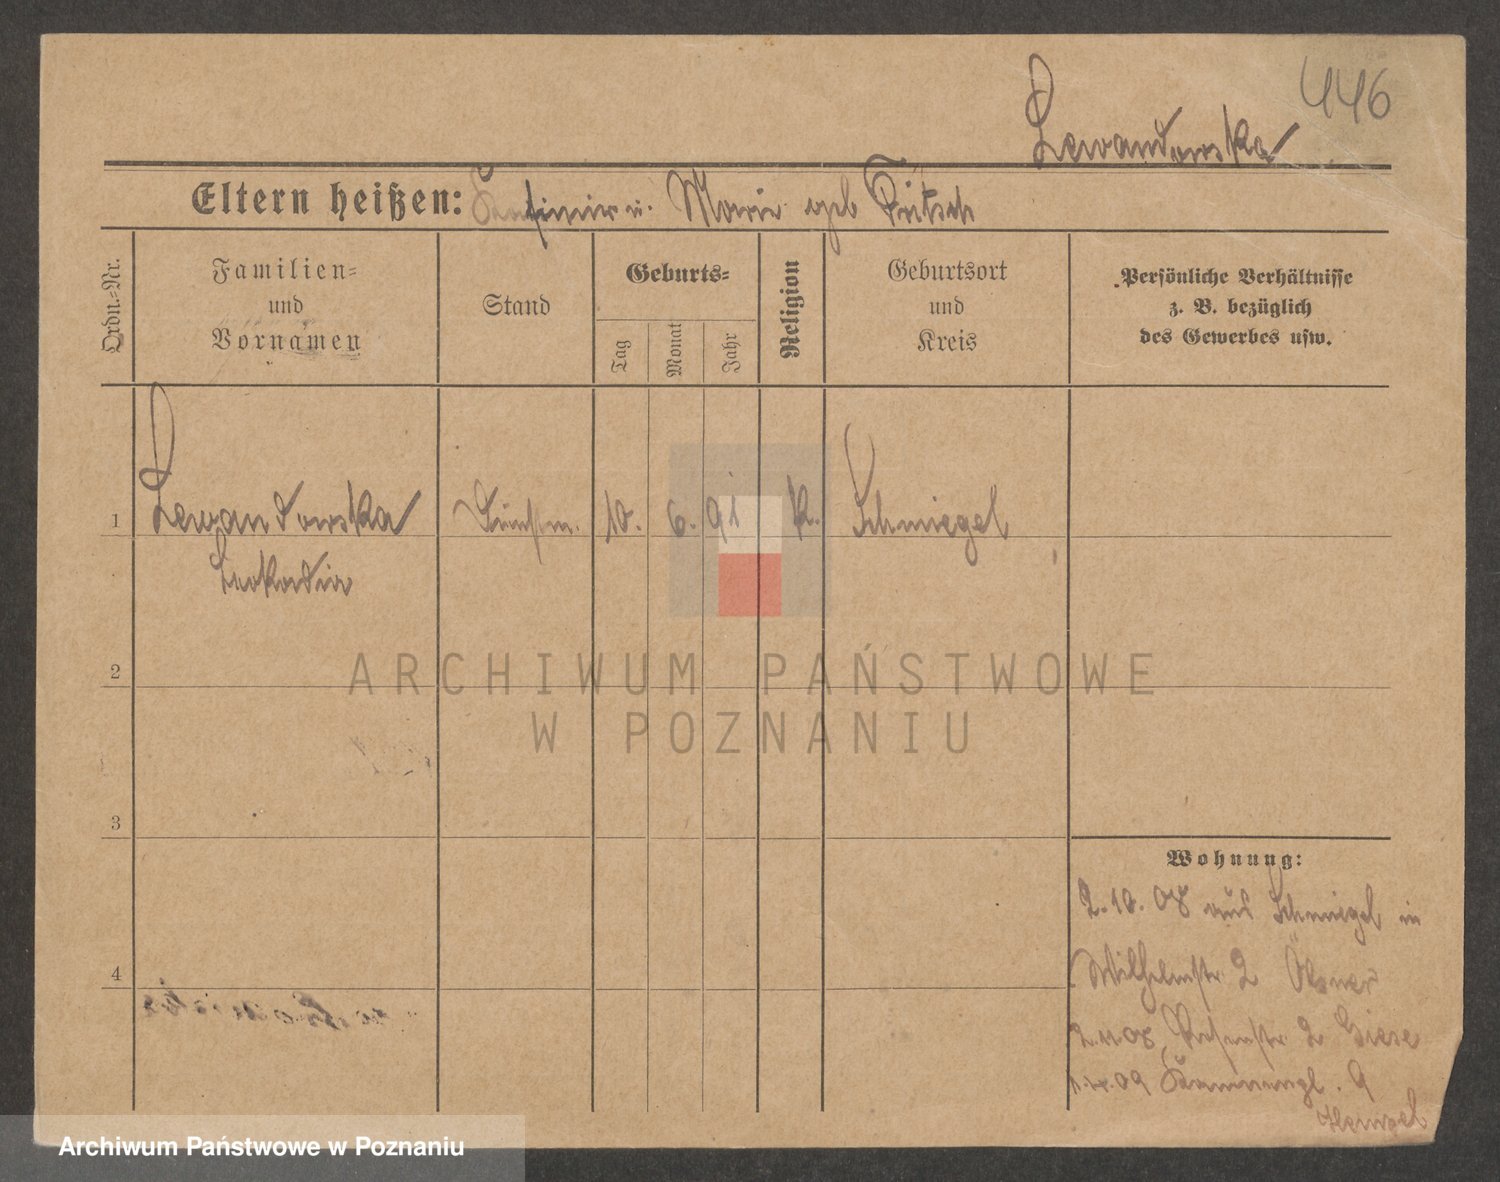 446
Lewandowska
Eltern heißen: Kasimir u. Marie geb
Ordn.=Nr.
Familien=
und
Vornamen
Stand
Geburts=
Tag
Monat
Jahr
Religion
Geburtsort
und
Kreis
Persönliche Verhältnisse
z. B. bezüglich
des Gewerbes usw.
1 Lewandowska 10. 6. 91 k. Schmiegel
Leokadia
2
ARCHIWUM PAŃSTWOWE
W POZNANIU
3
Wohnung:
2.10.08 aus Schmiegel in
4
Wilhelmstr 2
2.11.08 2 Giese
09 9
Archiwum Państwowe w Poznaniu